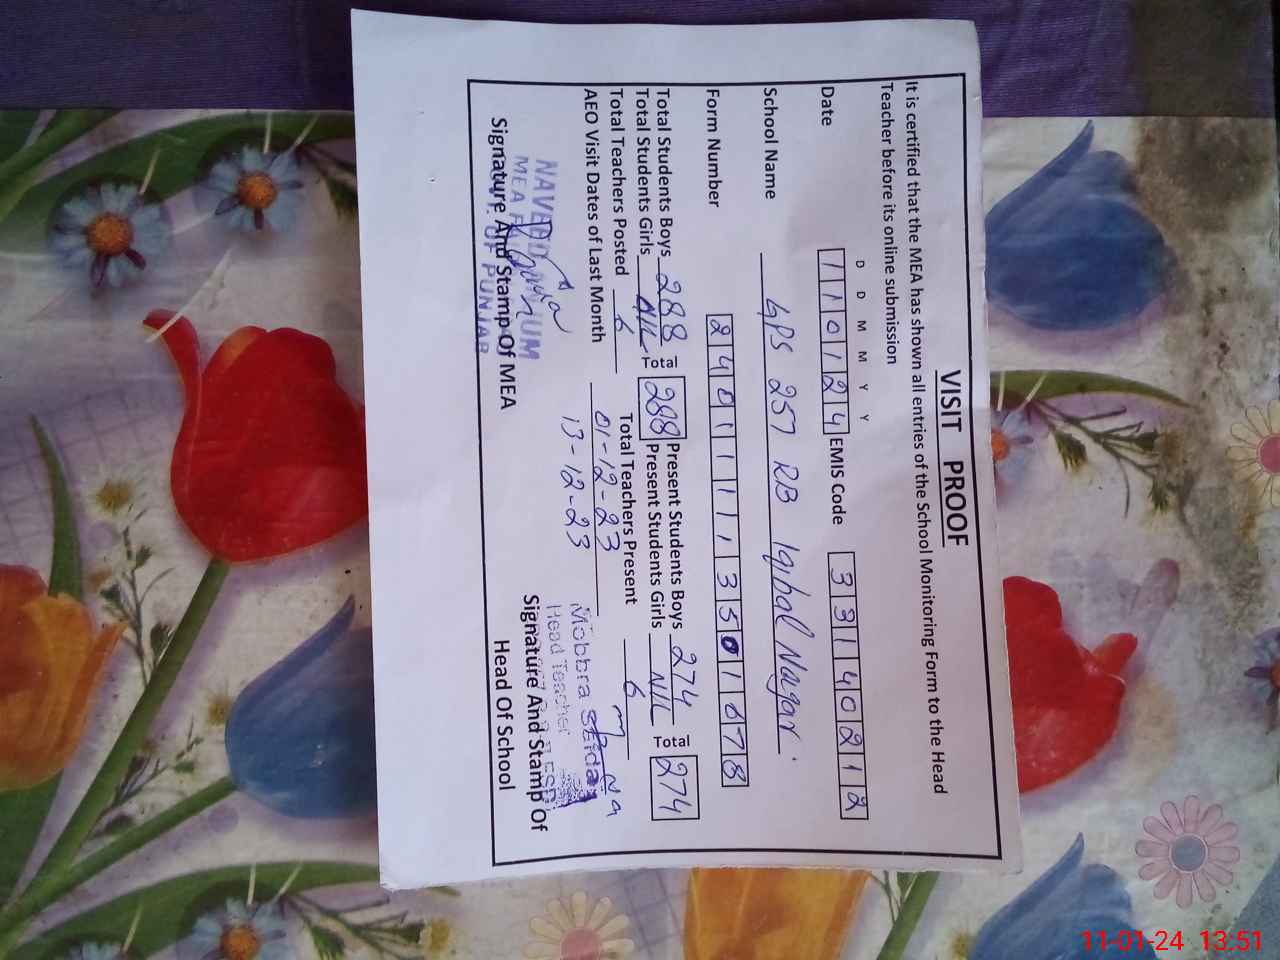 VISIT PROOF
It is certified that the MEA has shown all entries of the School Monitoring Form to the Head
Teacher before its online submission
D D M M Y Y
Date 110124 EMIS Code 33140212
School Name GPS 257 RB Iqbal Nagar.
Form Number 24011113501678
Total Students Boys 288 Total 288 Present Students Boys 274 Total 274
Total Students Girls NIL Present Students Girls NIL
Total Teachers Posted 6 Total Teachers Present 6
AEO Visit Dates of Last Month 01-12-23
13-12-23
NAVEED ANJUM
MEA
OF PUNJAB
Signature And Stamp Of MEA
Mobbra
Head Teacher
Signature And Stamp Of
Head Of School
11-01-24 13:51